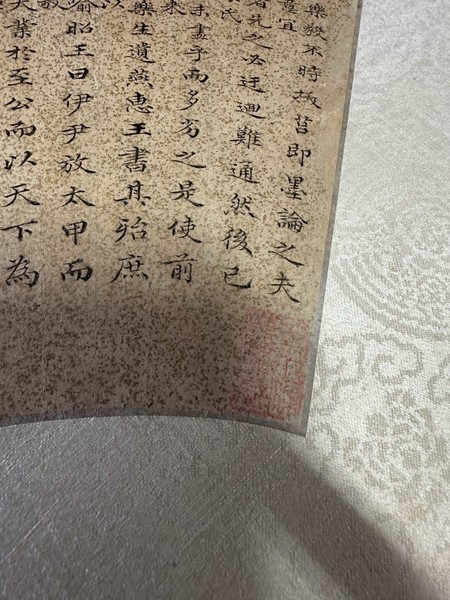 樂毅不時拔莒即墨論之夫
意宜
者先之必迂迴難通然後已
氏
未盡乎而多劣之是使前
來
樂生遺燕惠王書其殆庶
以
喻昭王曰伊尹放太甲而
大業於至公而以天下為